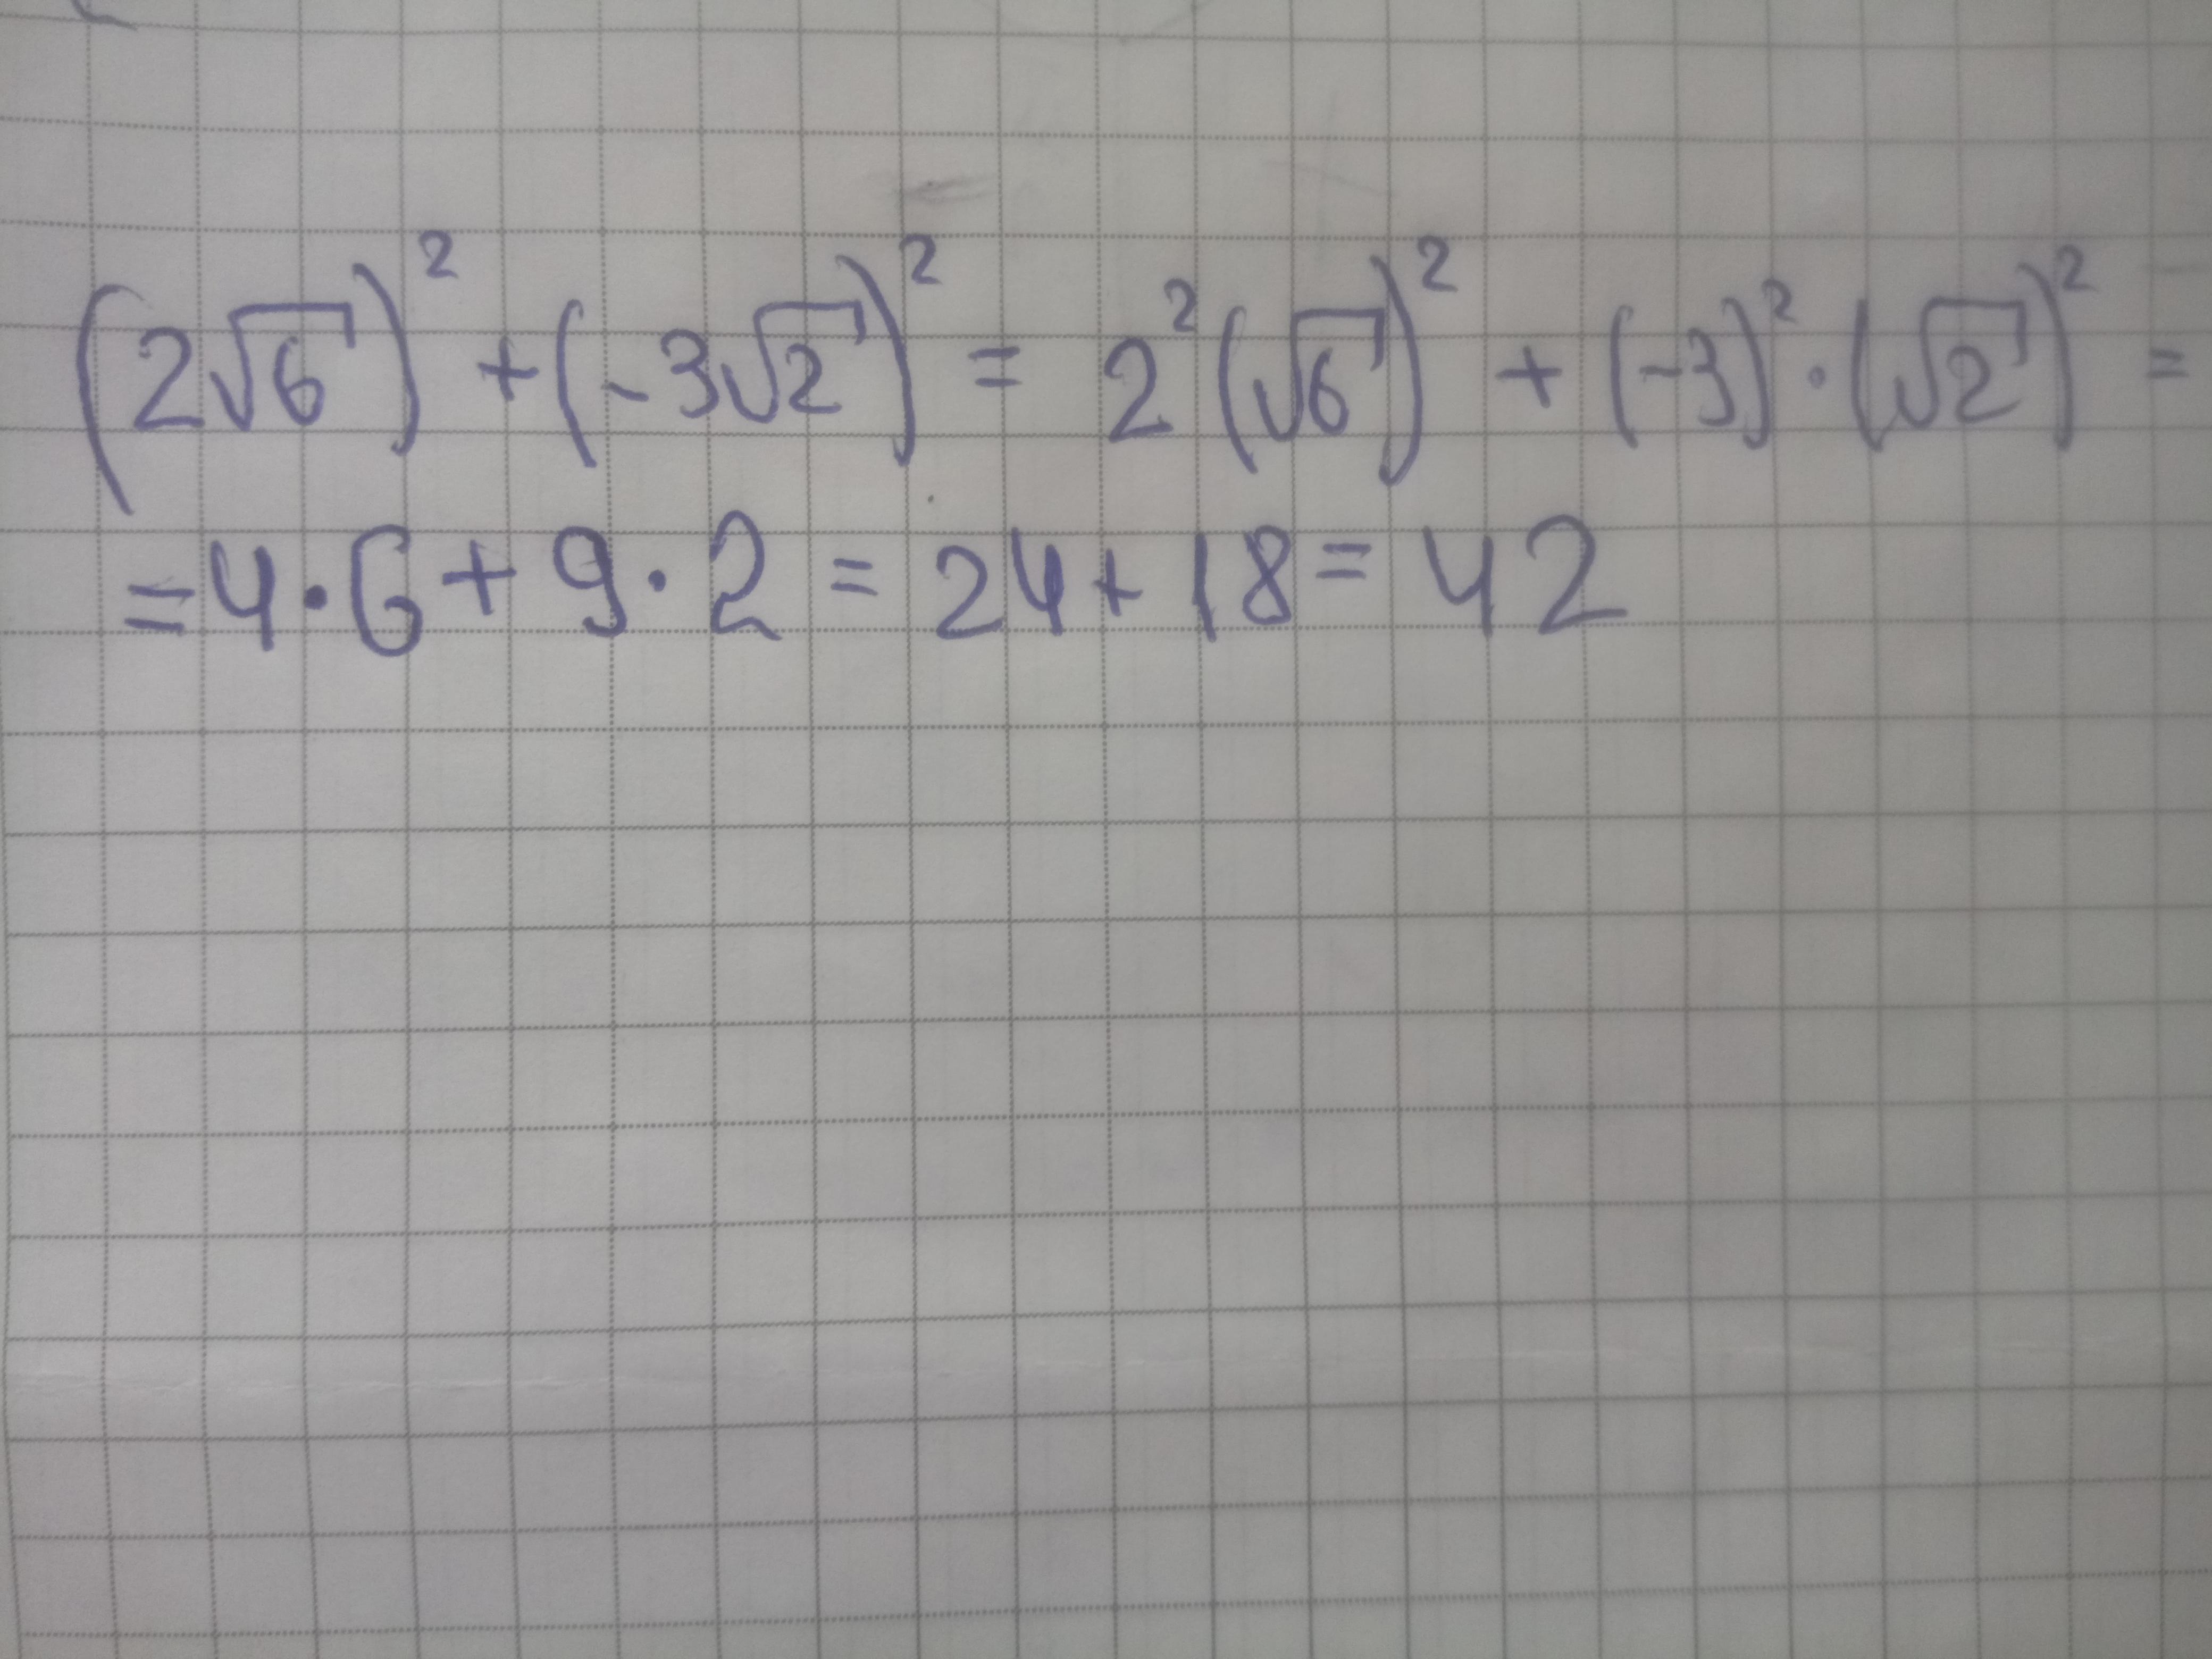 (2√6)² + (-3√2)² = 2²(√6)² + (-3)² · (√2)² =
= 4 · 6 + 9 · 2 = 24 + 18 = 42